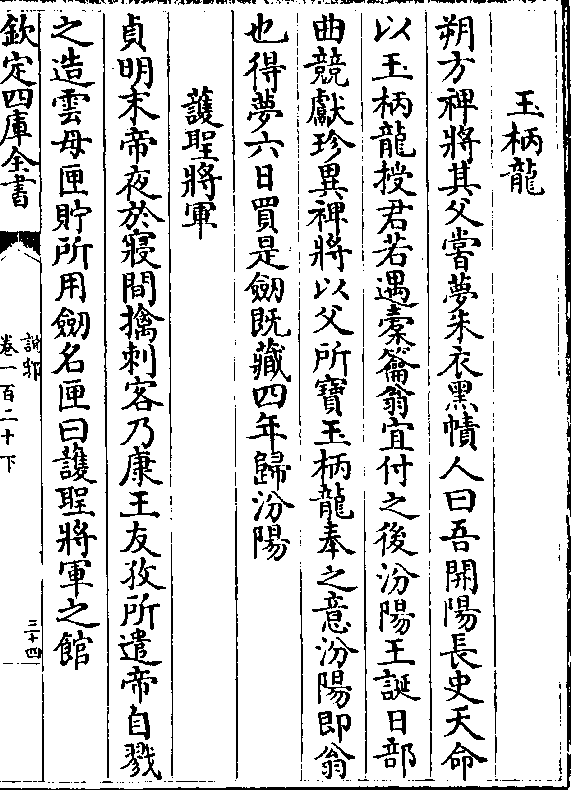 玉柄龍
朔方裨將其父嘗夢朱衣黑幘人曰吾開陽長史天命
以玉柄龍授君若遇橐籥翁宜付之後汾陽王誕日部
曲競獻珍異裨將以父所寶玉柄龍奉之意汾陽即翁
也得夢六日買是劔既藏四年歸汾陽
護聖將軍
貞明末帝夜於寢間擒刺客乃康王友孜所遣帝自戮
之造雲母匣貯所用劔名匣曰護聖將軍之館
欽定四庫全書
說郛
卷一百二十下
三十四